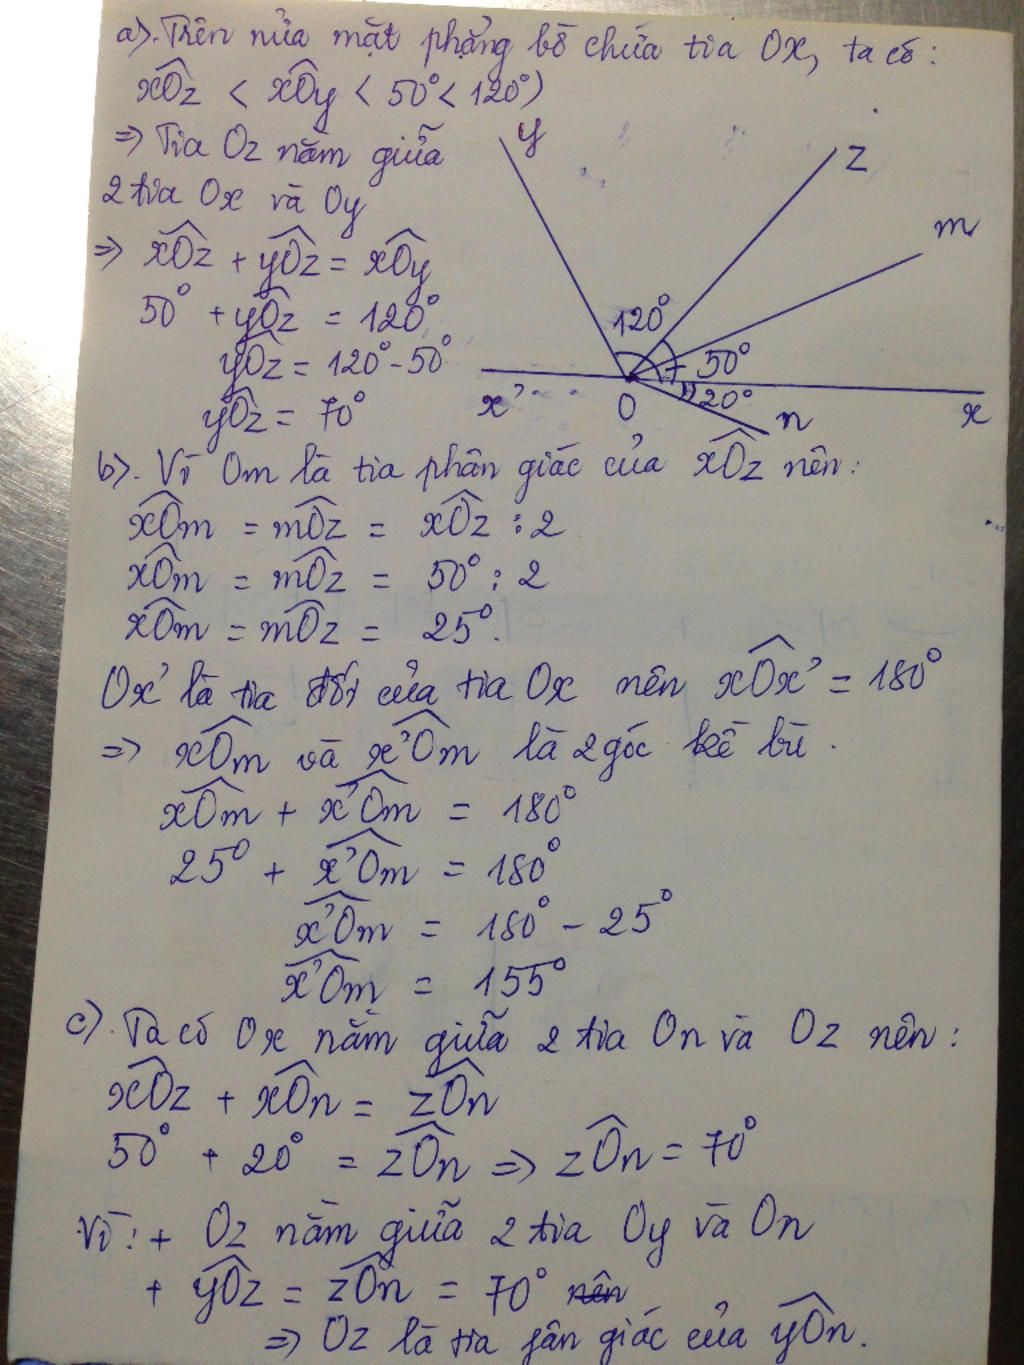 a). Trên nửa mặt phẳng bờ chứa tia Ox, ta có:
xÔz < xÔy < 50° < 120°)
=> Tia Oz nằm giữa
2 tia Ox và Oy
=> xÔz + yÔz = xÔy
50° + yÔz = 120°
yÔz = 120° - 50°
yÔz = 70°
y
z
m
120°
50°
20°
x'
O
n
x
b). Vì Om là tia phân giác của xÔz nên:
xÔm = mÔz = xÔz : 2
xÔm = mÔz = 50° : 2
xÔm = mÔz = 25°.
Ox' là tia đối của tia Ox nên xÔx' = 180°
=> xÔm và x'Ôm là 2 góc kề bù.
xÔm + x'Ôm = 180°
25° + x'Ôm = 180°
x'Ôm = 180° - 25°
x'Ôm = 155°
c). Ta có Ox nằm giữa 2 tia On và Oz nên:
xÔz + xÔn = zÔn
50° + 20° = zÔn => zÔn = 70°
Vì: + Oz nằm giữa 2 tia Oy và On
+ yÔz = zÔn = 70° nên
=> Oz là tia fân giác của yÔn.